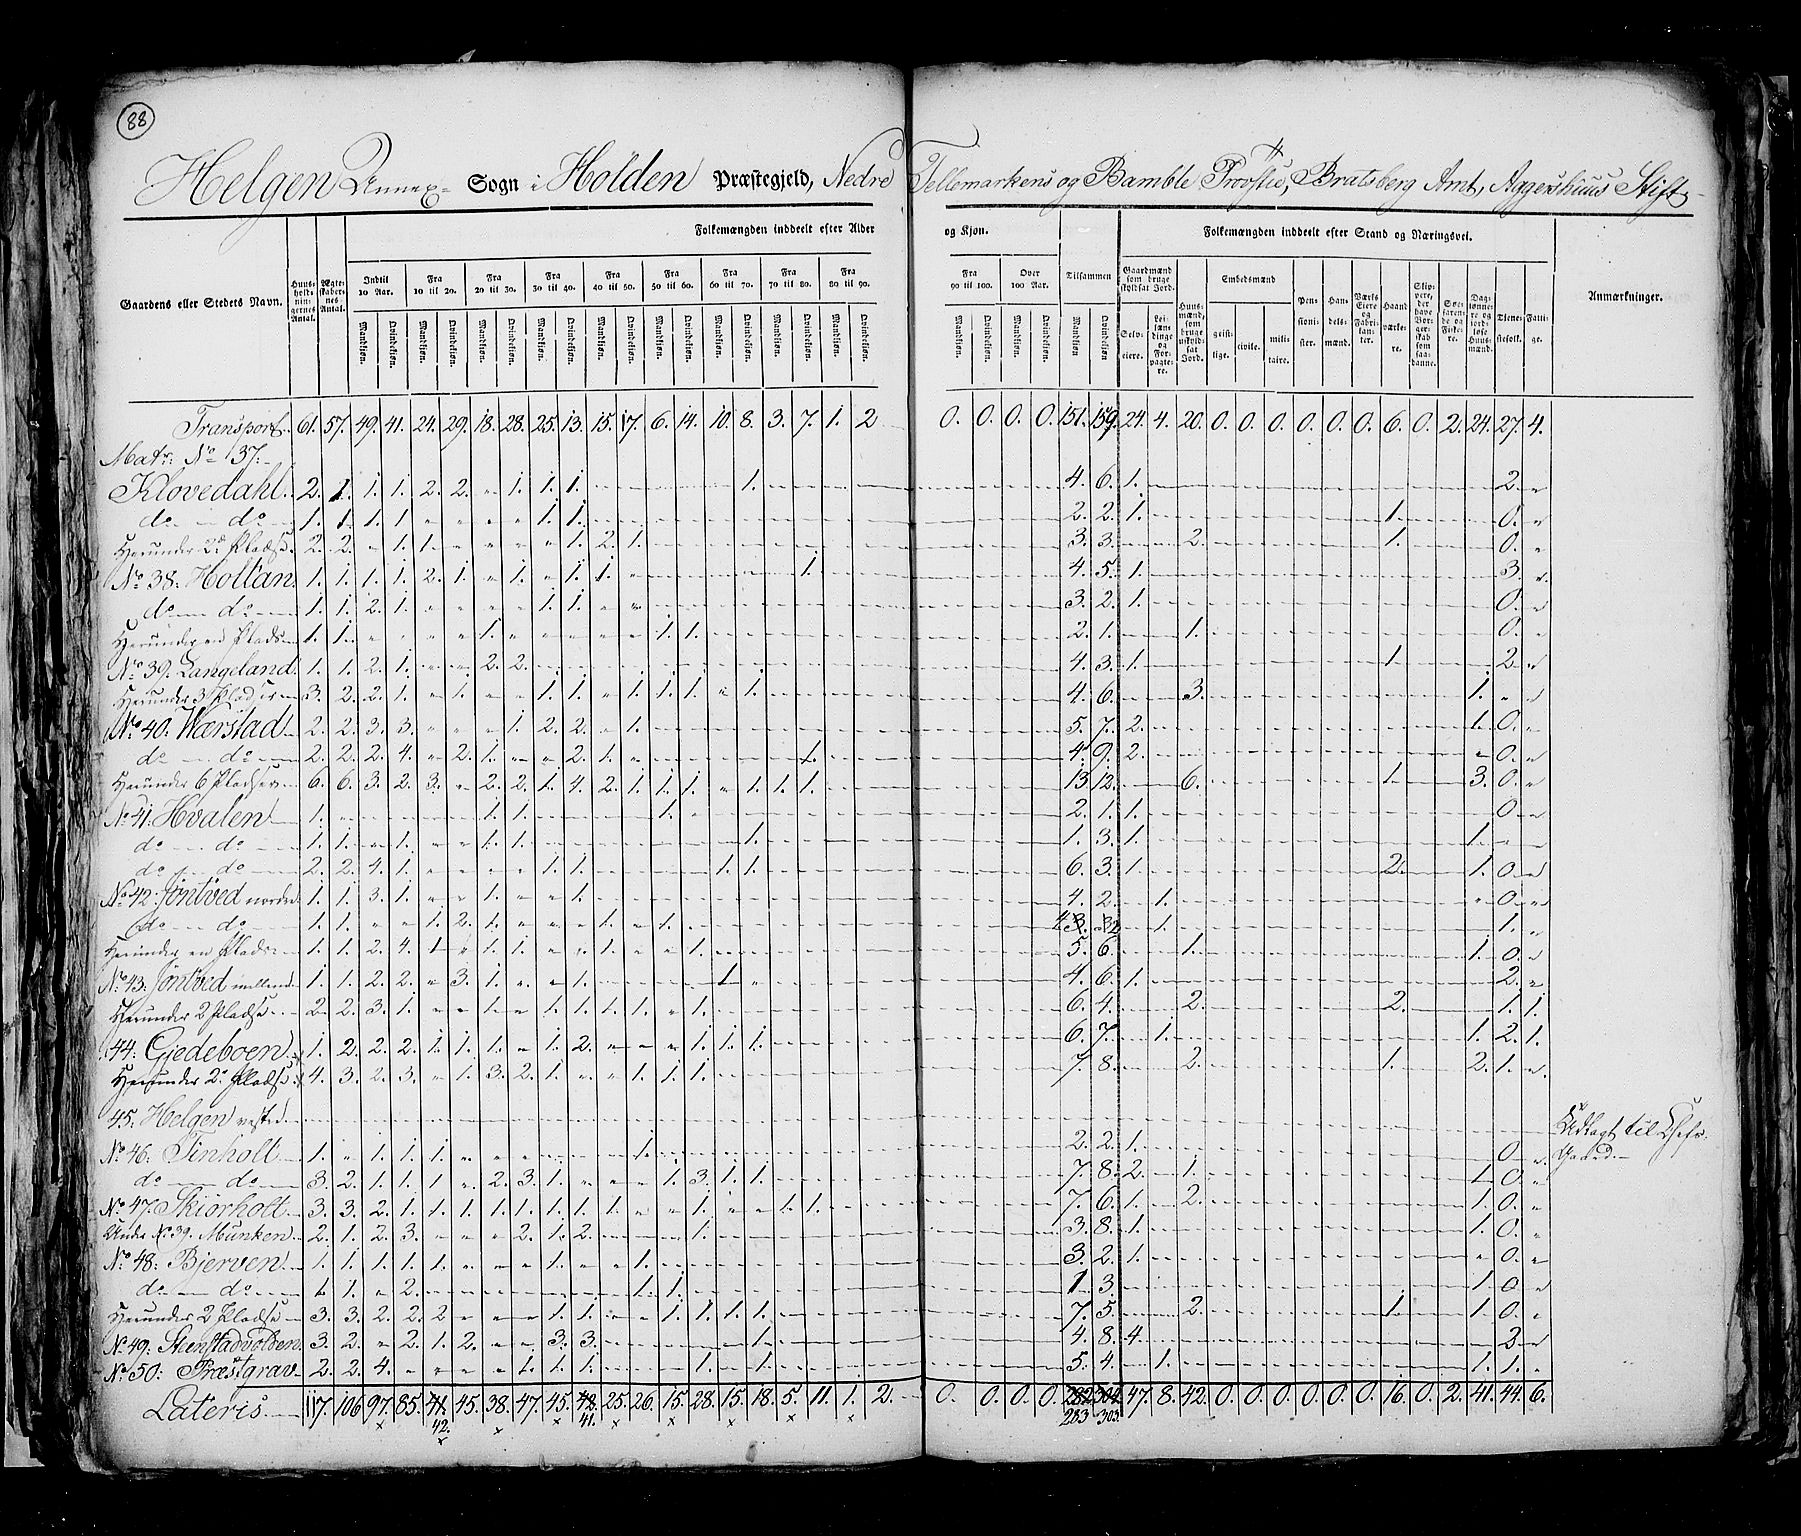 88
Helgen Annex- Sogn i Holden Præstegjeld, Nedre Tellemarkens og Bamble Provstie, Bratsberg Amt, Aggershuus Stift
Folkemængden inddeelt efter Alder og Kjøn.
Folkemængden inddeelt efter Stand og Næringsvei.
Gaardens eller Stedets Navn.
Huus-holdningernes Antal.
Ægteskabernes Antal.
Indtil 10 Aar.
Fra 10 til 20.
Fra 20 til 30.
Fra 30 til 40.
Fra 40 til 50.
Fra 50 til 60.
Fra 60 til 70.
Fra 70 til 80.
Fra 80 til 90.
Fra 90 til 100.
Over 100 Aar.
Tilsammen
Mandkjøn. Qvindekjøn.
Gaardmænd som bruge skyldsat Jord.
Selveiere.
Leilændinge og Forpagtere.
Huusmænd, som bruge uskyldsat Jord.
Embedsmænd
geistlige.
civile.
militaire.
Pensionister.
Handelsmænd.
Værks Eiere og Fabrikanter.
Haandværkere.
Skippere, der have Borgerskab som saadanne.
Søefarende og Fiskere.
Daglønnere og jordløse Huusmænd.
Tjenestefolk.
Fattige.
Anmærkninger.
Transport 61. 57. 49. 41. 24. 29. 18. 28. 25. 13. 15. 17. 6. 14. 10. 8. 3. 7. 1. 2 0. 0. 0. 0. 151. 159. 24. 4. 20. 0. 0. 0. 0. 0. 0. 6. 0. 2. 24. 27. 4.
Matr: No 137:
Klovedahl 2. 1. 1. 1. 2. 2. " 1. 1. 1. 1. 4. 6. 1. 2. "
do do 1. 1. 1. 1 1. 1. 2. 2. 1. 1. 0. "
Herunder 2 Pladse 2. 2. " 1. 1. 1. 2. 1. 3. 3. 2. 1. 0. "
No 38: Holtan 1. 1. 1. 1. 2. 1. " 1. " 1. 1. 1. 4. 5. 1. 3. "
do do 1. 1. 2. 1. 1. 1. 3. 2. 1. 0. "
Herunder en Plads 1. 1. 1. 1. 1. 2. 1. 1. 0. "
No 39. Langeland 1. 1. 2. 1. 2. 2. 4. 3. 1. 1. 2. "
Herunder 3 Pladser 3. 2. 2. 1. " 1. 1. 1. " 1. 1. 1. " 1. 4. 6. 3. 1. " "
No 40: Værstad 2. 2. 3. 3. 1. 2. 2. " 1. 5. 7. 2. 1. 0. "
do do 2. 2. 2. 4. " 2. 1. 2. 1. 1. 4. 9. 2. " 0. "
Herunder 6 Pladser 6. 6. 3. 2. 3. " 2. 2. 1. 4. 2. 1. 1. 1. " 1. 1. 1. 13. 12. 6. 1. 3. 0. "
No 41: Hvalen 1. 1. 1. 1. 2. 1. 1. 0. "
do do 1. 1. " 1. 1. 1. 1. 1. 3. 1. 1. "
do do 2. 2. 4. 1. 1. 1. 1. 1. 6. 3. 1. 2. 1. 0. "
No 42: Jøntved nordre 1. 1. 3. 1. 1. 1. 4. 2. 1. " 0. "
do do 1. 1. " " 1. 2. 1. 1. " 1. 4 3. 32 1. 1. "
Herunder en Plads 1. 1. 2. 4. 1 " 1. 1. 1. 1. 5. 6. 1. 1. 0. "
No 43: Jøntved mellem 1. 1. 2. 2. " 3. 1. 1. 1. 4. 6. 1. 2. "
Herunder 2 Pladse 2. 2. 3. 1. 1. " 1. 1. 1. 1. " 1. 6. 4. 2. 2. 1. 1.
44: Gjedeboen 1. 2. 2. 2. 1. 1. 1. " 1. 2. 1. 1. 1. 6. 7. 1. 1. 2. 1.
Herunder 2 Pladse 4. 3. 2. 3. " 1. 3. 2. 1. 1. 1. 1. 7. 8. 2. 1. 2. 1. "
45. Helgen vestre Udlagt til Chefs-Gaard.
No 46: Tinholt 1. " 1. 1. 1. 1. 2. 2. 1. 0. "
do do 3. 2. 1. 1. 1. " 2. 3. 1. 1. 3. 1. 1. 7. 8. 2. 1. 1. 0. "
No 47. Skiørholt 3. 3. 2. 1. 1. 1. 1. 1. 1. 1. 1. 1. 1. 1. 7. 6. 1. 2. 1. 0. "
Under No 39. Munken 2. 1. 2. 3. 2. 1. 2. 1. 3. 8. 1. 1. 0. "
No 48: Bjerven 1. 1. 1. 1. 1. 1. " 1. 3. 2. 1. " 0. "
do do 1. 1. " 2. 1. 1. 1. 3. 1. 0. "
Herunder 2 Pladse 3. 3. 2. 2. 2 1. 1. 1. 1. 1. 1. 7. 5. 2. 1. 1. 0. "
No 49: Steenstadvolden 3. 2. " 2. 1. 2. 3. 3. 1. 4. 8. 4. 2. "
No 50: Præstgrav 2. 2. 4. 1. 1. 1. 1. 1. 5. 4. 1. 1. 1. "
Lateris 117. 106. 97. 85. 41. 45. 38. 47. 45. 42. 25. 26. 15. 28. 15. 18. 5. 11. 1. 2. 0. 0. 0. 0. 282. 304. 47. 8. 42. 0. 0. 0. 0. 0. 0. 16. 0. 2. 41. 44. 6.
42. 41. 283 303.